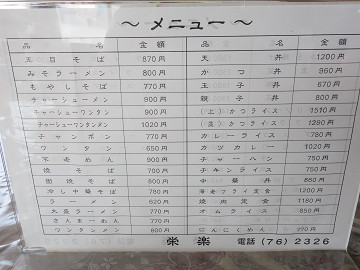 ～ メニュー ～
品 名 金額 品 名 金額
五目そば 870円 天丼 1200円
みそラーメン 800円 かつ丼 960円
もやしそば 770円 玉子丼 670円
チャーシューメン 900円 親子丼 800円
チャーシューワンタン 900円 (上)かつライス 1510円
チャーシューワンタンメン 1020円 (並)かつライス 1290円
チャンポン 770円 カレーライス 780円
ワンタン 650円 カツカレー 1020円
900円 チャーハン 750円
焼そば 770円 チキンライス 750円
800円 中華丼 860円
冷し中華そば 780円 海老フライ定食 1200円
ラーメン 620 焼肉定食 1180円
大盛ラーメン 770円 オムライス 850円
さんまーめん 770円
ワンタンメン 800円 にんにくしめん 270円
栄楽 電話(76)2326